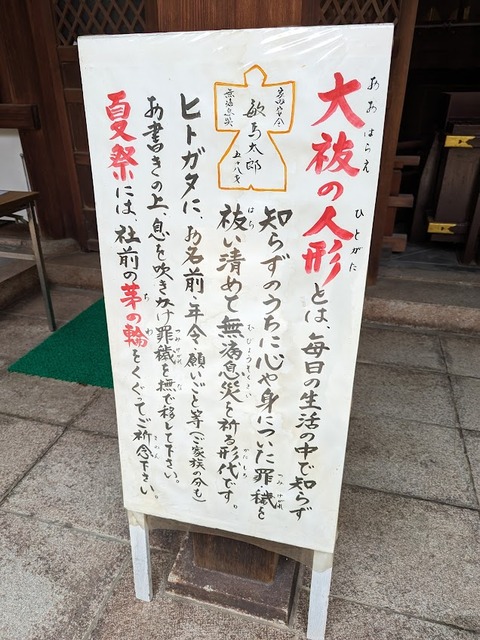 大祓の人形とは、毎日の生活の中で知らず
おおはらえ
ひとがた
知らずのうちに心や身についた罪穢を
つみけがれ
祓い清めて無病息災を祈る形代です。
はら
むびょうそくさい
かたしろ
敏馬太郎
五十八才
無病息災
ヒトガタに、お名前・年令・願いごと等(ご家族の分も)
お書きの上、息を吹きかけ罪穢を撫で移して下さい。
つみけがれ
な
夏祭には、社前の茅の輪をくぐってご祈念下さい。
ちわ
きねん